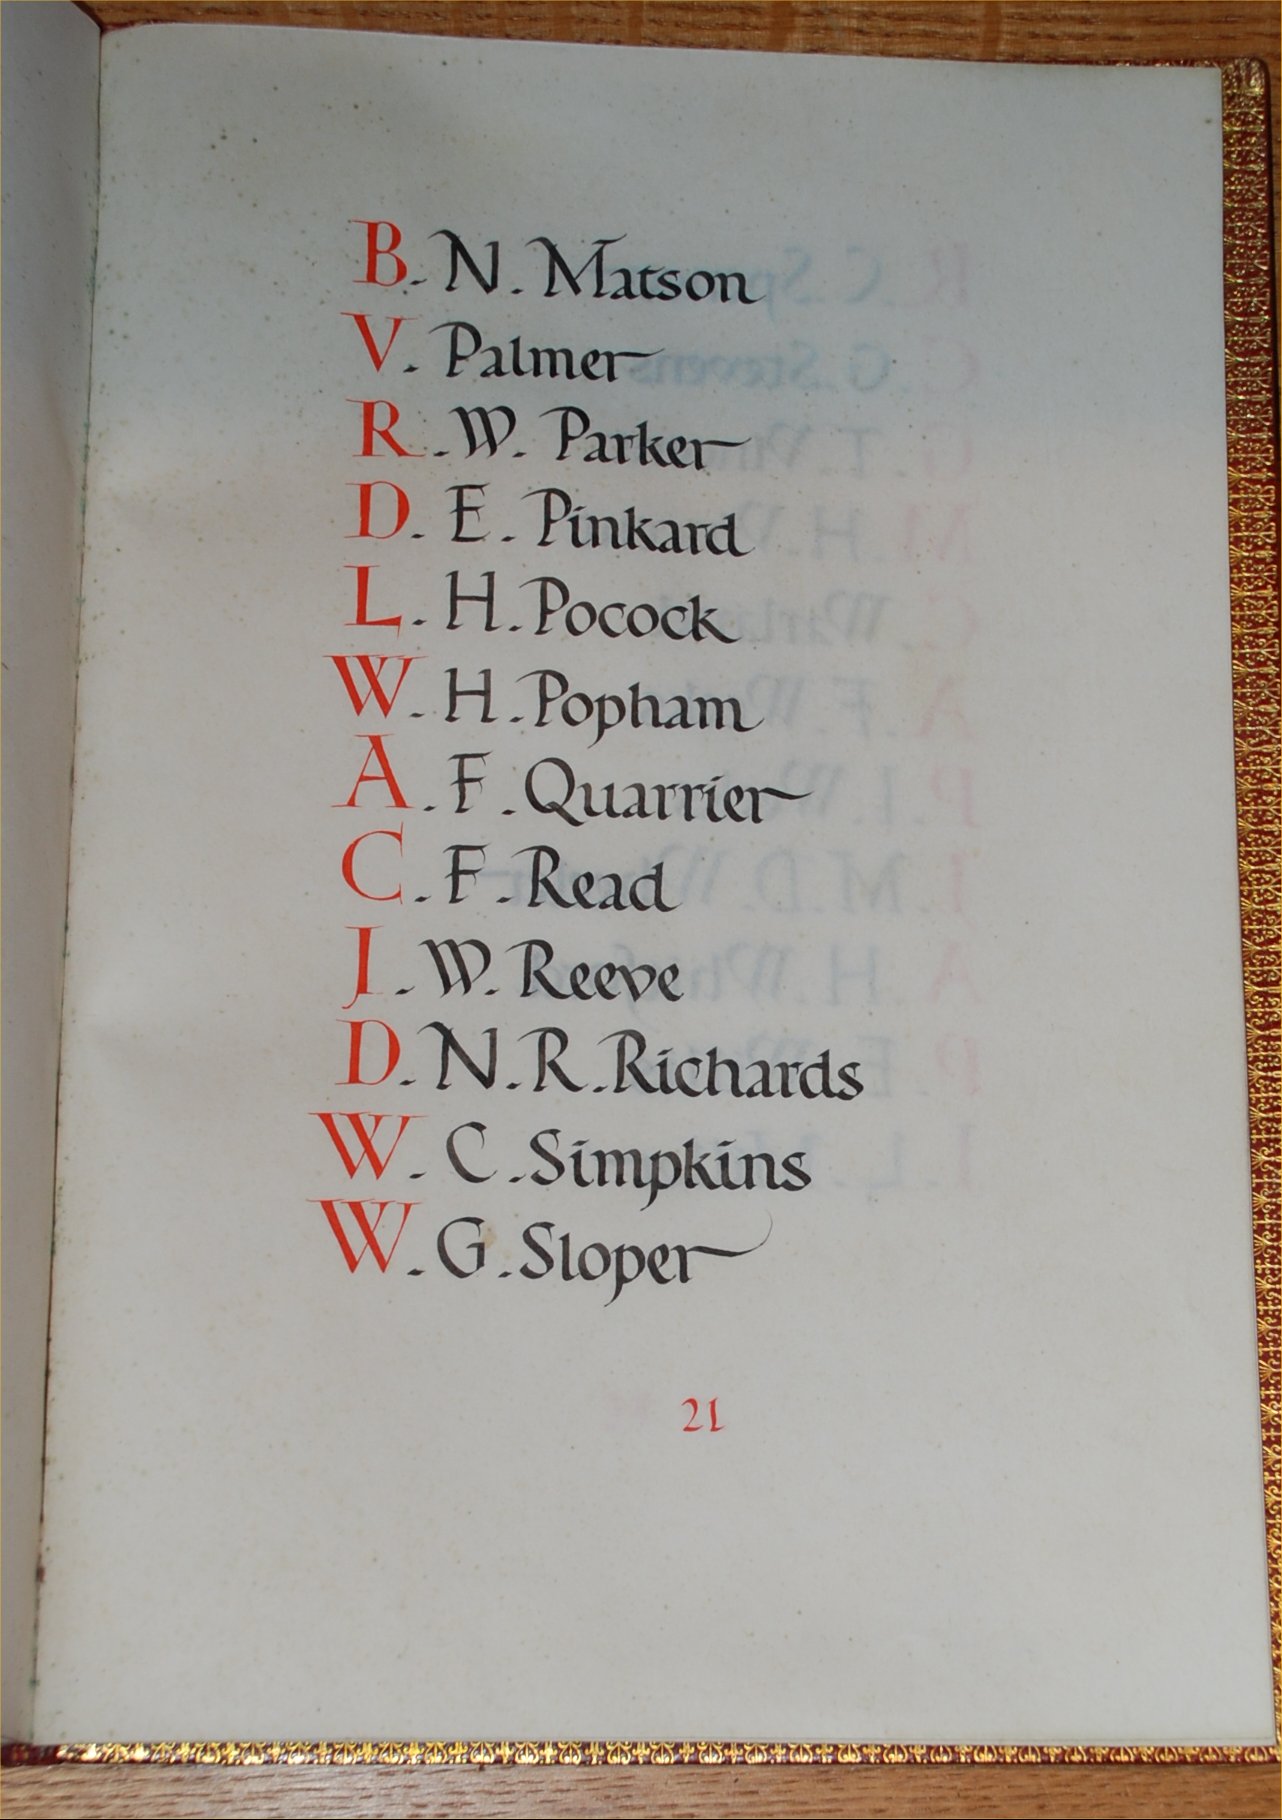 B. N. Matson
V. Palmer
R. W. Parker
D. E. Pinkard
L. H. Pocock
W. H. Popham
A. F. Quarrier
C. F. Read
J. W. Reeve
D. N. R. Richards
W. C. Simpkins
W. G. Sloper
21